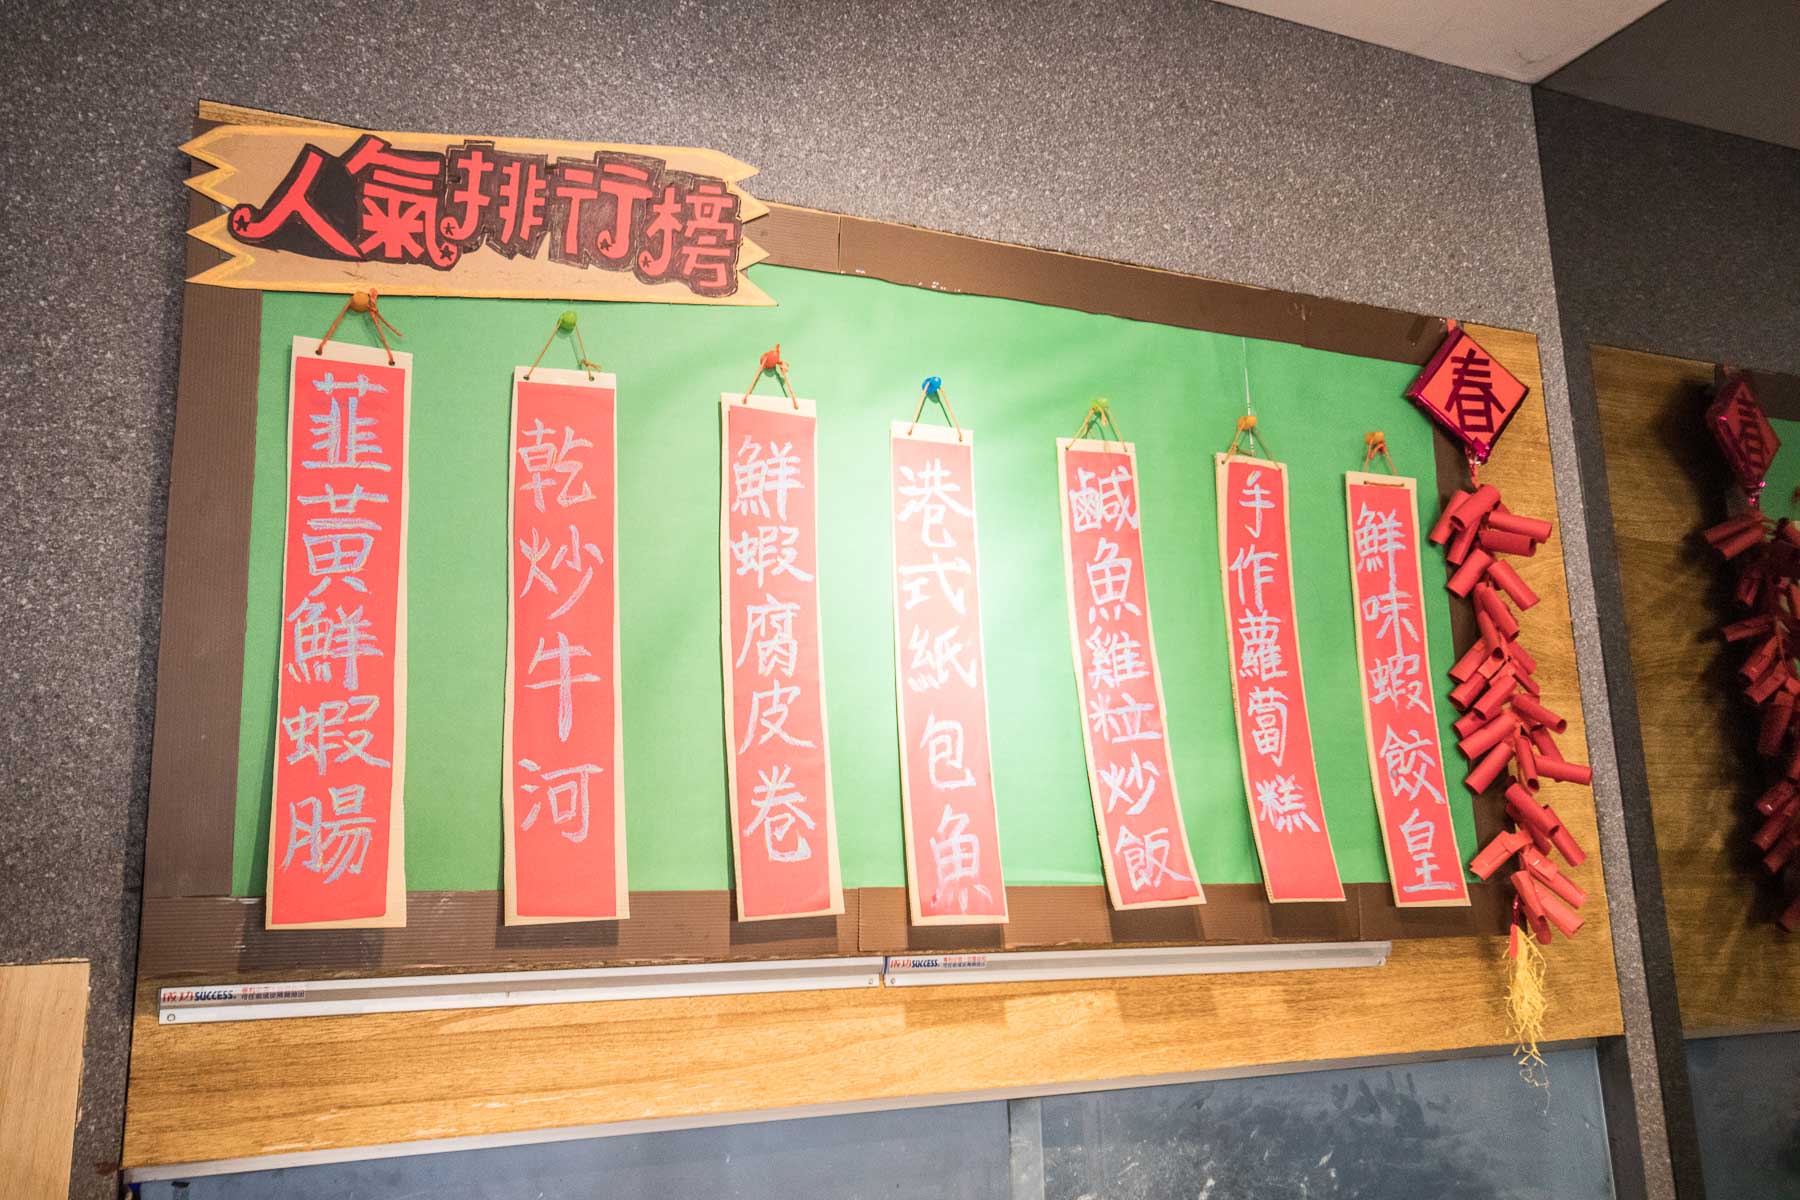 人氣排行榜
韮黃鮮蝦腸
乾炒牛河
鮮蝦腐皮卷
港式紙包魚
鹹魚雞粒炒飯
手作蘿蔔糕
鮮味蝦餃皇
春
春
成功 SUCCESS
成功 SUCCESS